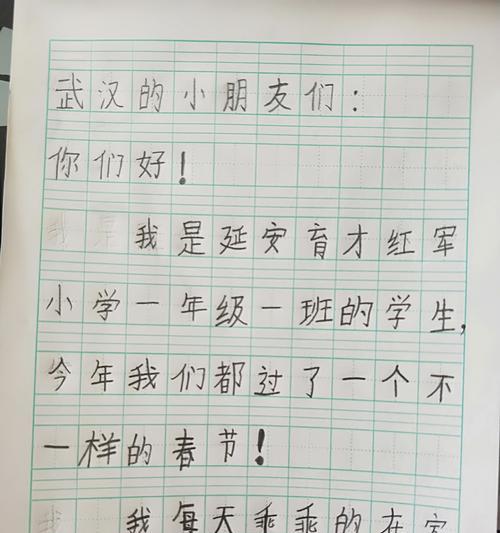 武汉的小朋友们：
你们好！
我是延安育才红军
小学一年级一班的学生，
今年我们都过了一个不
一样的春节！
我每天乖乖的在家